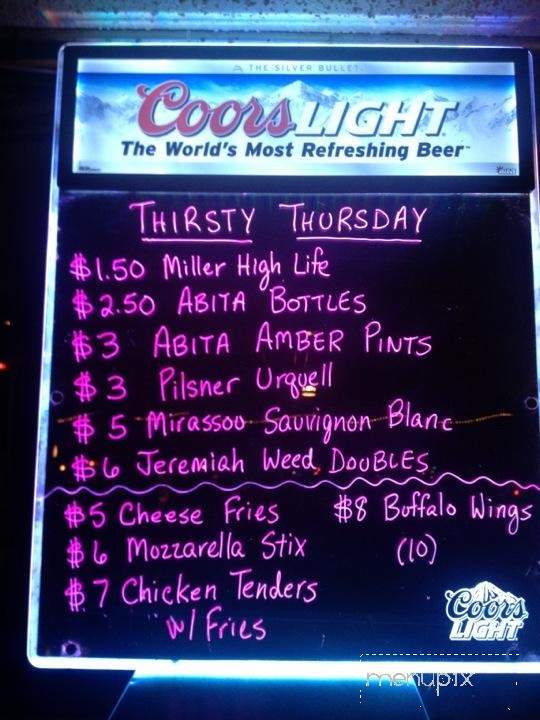 THE SILVER BULLET
Coors LIGHT
The World's Most Refreshing Beer™
THIRSTY THURSDAY
$1.50 Miller High Life
$2.50 ABITA BOTTLES
$3 ABITA AMBER PINTS
$3 Pilsner Urquell
$5 Mirassou Sauvignon Blanc
$6 Jeremiah Weed DOUBLES
$5 Cheese Fries $8 Buffalo Wings
$6 Mozzarella Stix (10)
$7 Chicken Tenders
w/ Fries
Coors
LIGHT
menupix